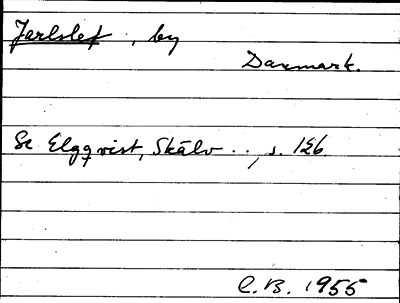 Jarlslef, by
Danmark.
Se Elgqvist, Skälv .., s. 126.
C.B. 1955